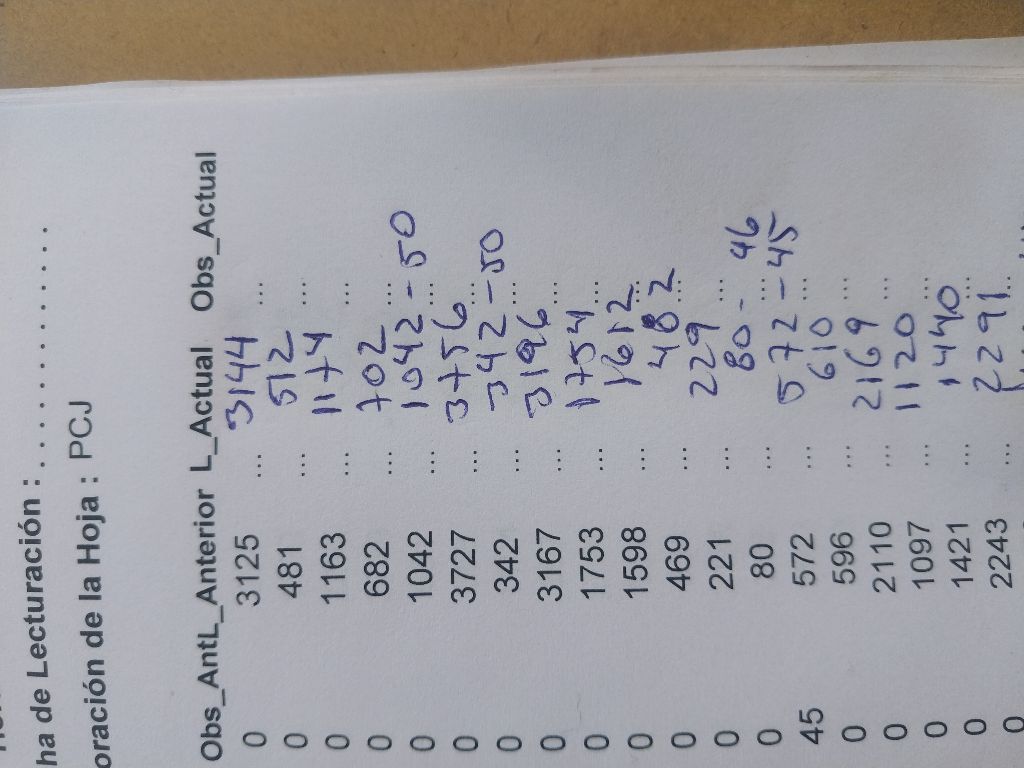 ha de Lecturación : . . . . . . . . . . . . . . .
oración de la Hoja : PCJ
Obs_AntL_Anterior L_Actual Obs_Actual
0 3125 ... 3144 ...
0 481 ... 512 ...
0 1163 ... 1174 ...
0 682 ... 702 ...
0 1042 ... 1042 - 50 ...
0 3727 ... 3756 ...
0 342 ... 342 - 50 ...
0 3167 ... 3196 ...
0 1753 ... 1754 ...
0 1598 ... 1612 ...
0 469 ... 482 ...
0 221 ... 229 ...
0 80 ... 80 - 46 ...
45 572 ... 572 - 45 ...
0 596 ... 610 ...
0 2110 ... 2169 ...
0 1097 ... 1120 ...
0 1421 ... 1440 ...
0 2243 ... 2291 ...